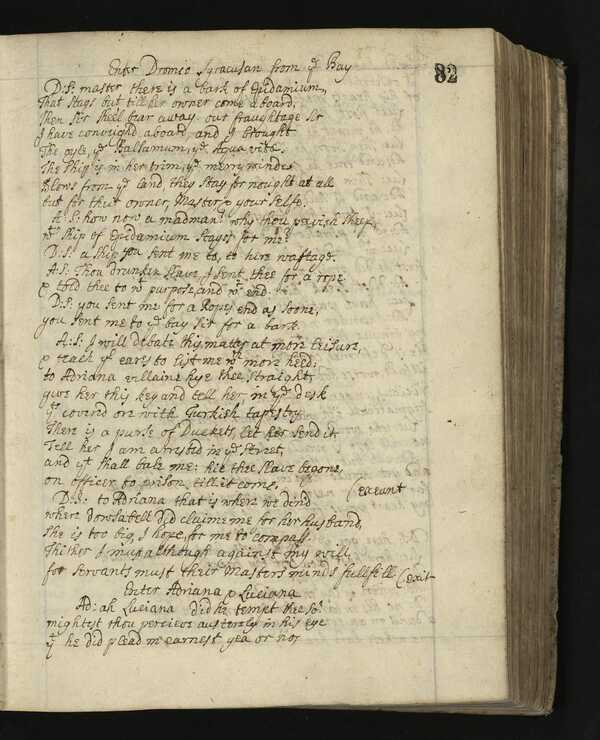 82
Enter Dromio Syracusan from yͤ Bay
D.S: master there is a bark of Epidamium,
That stays but till her owner come aboard,
Then Sir sheel bear away. our fraughtage sir
I have conveighd aboard, and I bought
The oyle, yͤ Balsamum, yͤ Aqua vitæ.
The ship is in her trim, yͤ merry winde
Blows from yͤ land, they stay for nought at all
but for their owner, Master & your selfe.
A:S: how now a madman? why thou pevish sheep,
wͭ ship of Epidamium stayes for me?
D.S: a ship you sent me to, to hire waftage.
A.S: Thou drunken slave I sent thee for a rope
& told thee to wͭ purpose, and wͭ end.
D:S: you sent me for a Ropes end as soone,
you sent me to yͤ bay sir for a bark.
A:S: I will debate this matter at more leisure,
& teach yͬ ears to list me wͭʰ more heed:
to Adriana villaine hye thee straight
give her this key and tell her, in yͤ desk
yͭ coverd ore with Turkish tapestry
There is a purse of Duckets, let her send it
Tell her I am arrested in yͤ street,
and yͭ shall bale me: hie thee slave begone,
on officer to prison, till it come. (exeunt
D:S: to Adriana that is where we dind
where dowsabell did claime me for her husband,
she is too big, I hope, for me to compass.
Thither I must although against my will,
for servants must their Masters minds fullfill (exit
Enter Adriana & Luciana
Ad: ah Luciana did he tempt thee so?
mightst thou perceive austerely in his eye
yͭ he did plead in earnest yea or no?